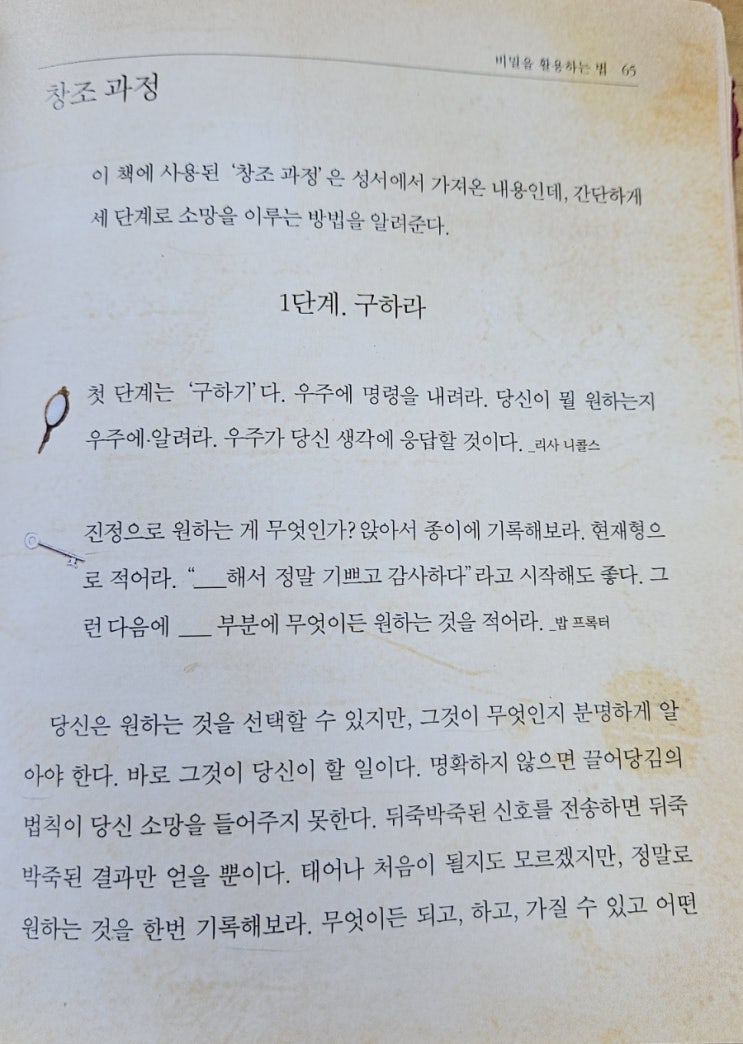 비밀을 활용하는 법 65
창조 과정
이 책에 사용된 ‘창조 과정’은 성서에서 가져온 내용인데, 간단하게
세 단계로 소망을 이루는 방법을 알려준다.
1단계. 구하라
첫 단계는 ‘구하기’다. 우주에 명령을 내려라. 당신이 뭘 원하는지
우주에 알려라. 우주가 당신 생각에 응답할 것이다. _리사 니콜스
진정으로 원하는 게 무엇인가? 앉아서 종이에 기록해보라. 현재형으
로 적어라. “___해서 정말 기쁘고 감사하다”라고 시작해도 좋다. 그
런 다음에 ___ 부분에 무엇이든 원하는 것을 적어라. _밥 프록터
당신은 원하는 것을 선택할 수 있지만, 그것이 무엇인지 분명하게 알
아야 한다. 바로 그것이 당신이 할 일이다. 명확하지 않으면 끌어당김의
법칙이 당신 소망을 들어주지 못한다. 뒤죽박죽된 신호를 전송하면 뒤죽
박죽된 결과만 얻을 뿐이다. 태어나 처음이 될지도 모르겠지만, 정말로
원하는 것을 한번 기록해보라. 무엇이든 되고, 하고, 가질 수 있고 어떤